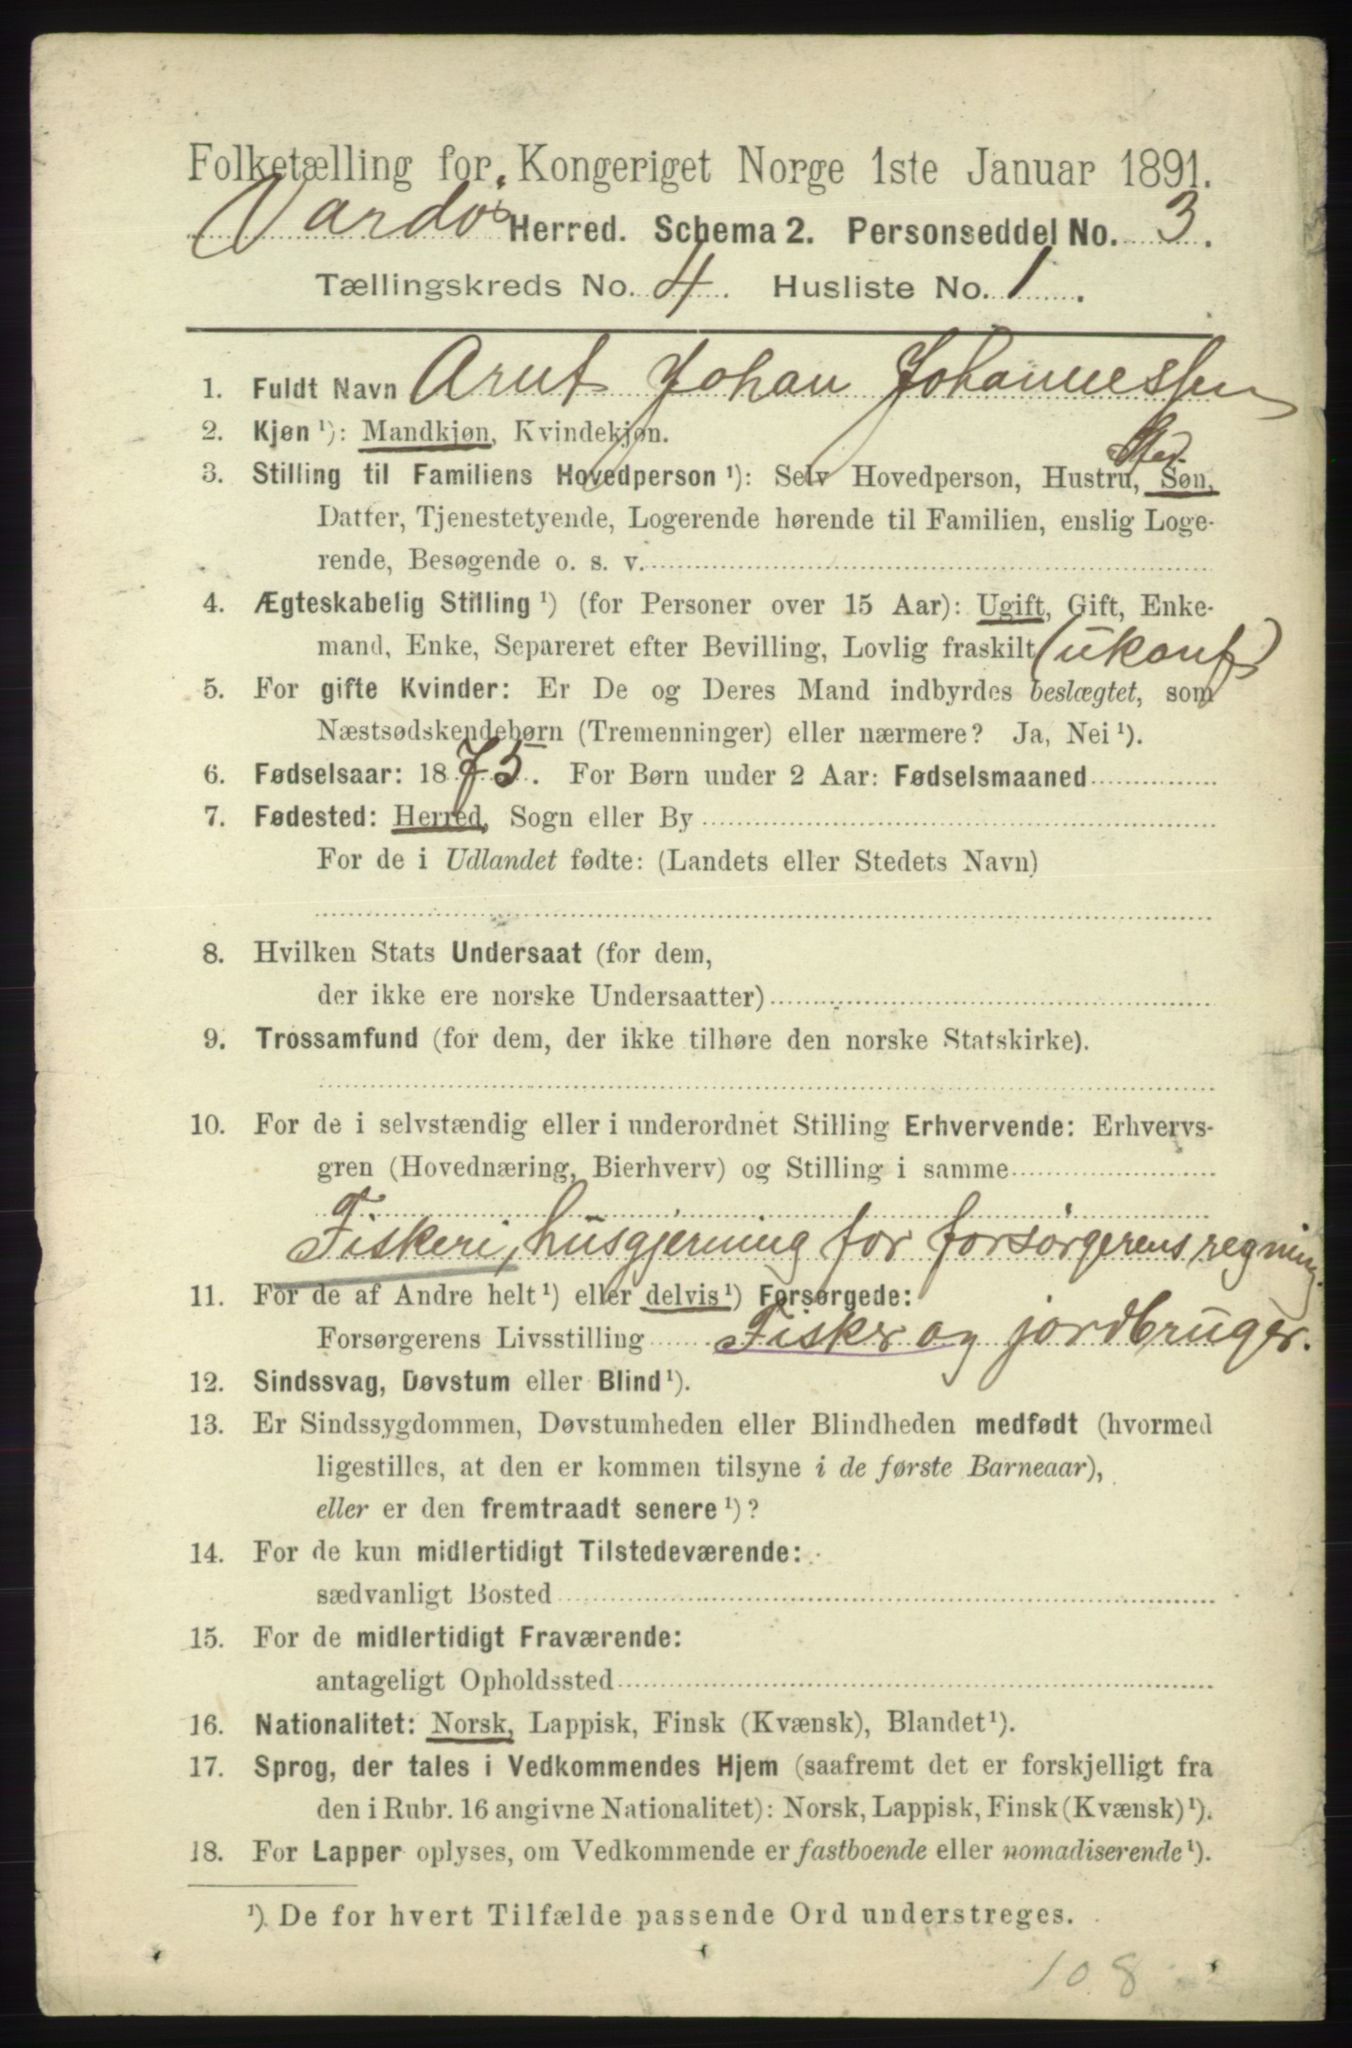 Folketælling for Kongeriget Norge 1ste Januar 1891.
Vardø Herred. Schema 2. Personseddel No. 3.
Tællingskreds No. 4. Husliste No. 1.
1. Fuldt Navn Arnt Johan Johannessen
2. Kjøn ¹): Mandkjøn, Kvindekjøn.
Sted
3. Stilling til Familiens Hovedperson ¹): Selv Hovedperson, Hustru, Søn,
Datter, Tjenestetyende, Logerende hørende til Familien, enslig Loge-
rende, Besøgende o. s. v.
4. Ægteskabelig Stilling ¹) (for Personer over 15 Aar): Ugift, Gift, Enke-
mand, Enke, Separeret efter Bevilling, Lovlig fraskilt (ukonf)
5. For gifte Kvinder: Er De og Deres Mand indbyrdes beslægtet, som
Næstsødskendebørn (Tremenninger) eller nærmere? Ja, Nei ¹).
6. Fødselsaar: 1875. For Børn under 2 Aar: Fødselsmaaned
7. Fødested: Herred, Sogn eller By
For de i Udlandet fødte: (Landets eller Stedets Navn)
8. Hvilken Stats Undersaat (for dem,
der ikke ere norske Undersaatter)
9. Trossamfund (for dem, der ikke tilhøre den norske Statskirke).
10. For de i selvstændig eller i underordnet Stilling Erhvervende: Erhvervs-
gren (Hovednæring, Bierhverv) og Stilling i samme
Fiskeri, husgjerning for forsørgerens regning.
11. For de af Andre helt ¹) eller delvis ¹) Forsørgede:
Forsørgerens Livsstilling Fisker og jordbruger.
12. Sindssvag, Døvstum eller Blind ¹).
13. Er Sindssygdommen, Døvstumheden eller Blindheden medfødt (hvormed
ligestilles, at den er kommen tilsyne i de første Barneaar),
eller er den fremtraadt senere ¹)?
14. For de kun midlertidigt Tilstedeværende:
sædvanligt Bosted
15. For de midlertidigt Fraværende:
antageligt Opholdssted
16. Nationalitet: Norsk, Lappisk, Finsk (Kvænsk), Blandet ¹).
17. Sprog, der tales i Vedkommendes Hjem (saafremt det er forskjelligt fra
den i Rubr. 16 angivne Nationalitet): Norsk, Lappisk, Finsk (Kvænsk) ¹).
18. For Lapper oplyses, om Vedkommende er fastboende eller nomadiserende ¹).
¹) De for hvert Tilfælde passende Ord understreges.
108